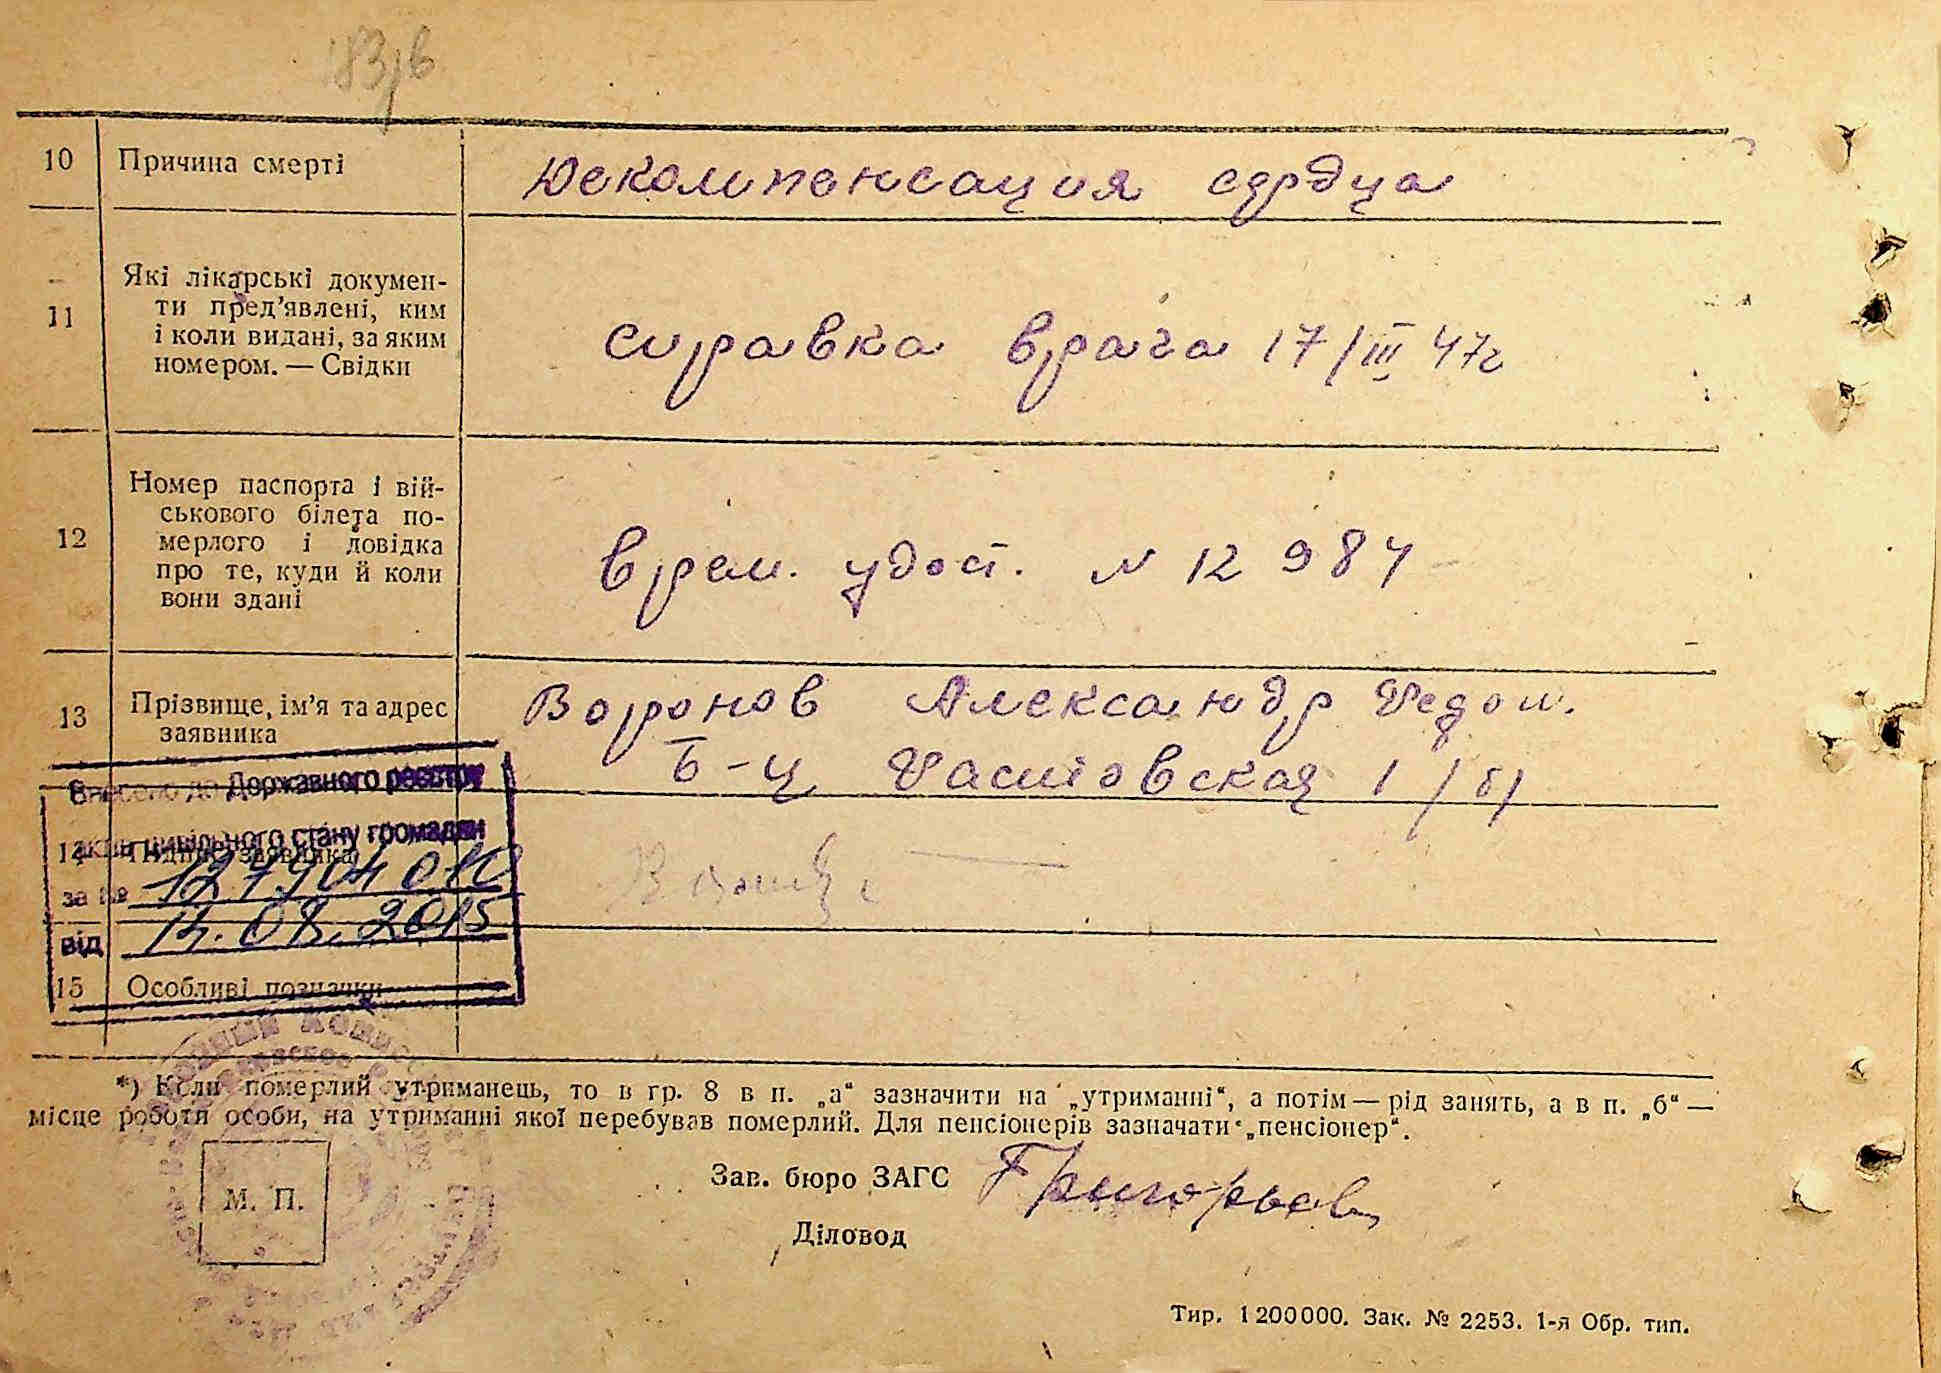 10 Причина смерті Декомпенсация сердца
11 Які лікарські докумен-
ти пред'явлені, ким
і коли видані, за яким
номером. — Свідки
справка врача 17/III 47г
12 Номер паспорта і вій-
ськового білета по-
мерлого і довідка
про те, куди й коли
вони здані
врем. удост. N 12 984
13 Прізвище, ім'я та адрес
заявника
Воронов Александр
Б-ц 1
Внесено до Державного реєстру
актів цивільного стану громадян
14 Підпис заявника
за №
від 2015
15 Особливі позначки
*) Коли померлий утриманець, то в гр. 8 в п. „а“ зазначити на „утриманні“, а потім — рід занять, а в п. „б“ —
місце роботи особи, на утриманні якої перебував померлий. Для пенсіонерів зазначати „пенсіонер“.
М. П.
Зав. бюро ЗАГС Григорьев
Діловод
Тир. 1200000. Зак. № 2253. 1-я Обр. тип.